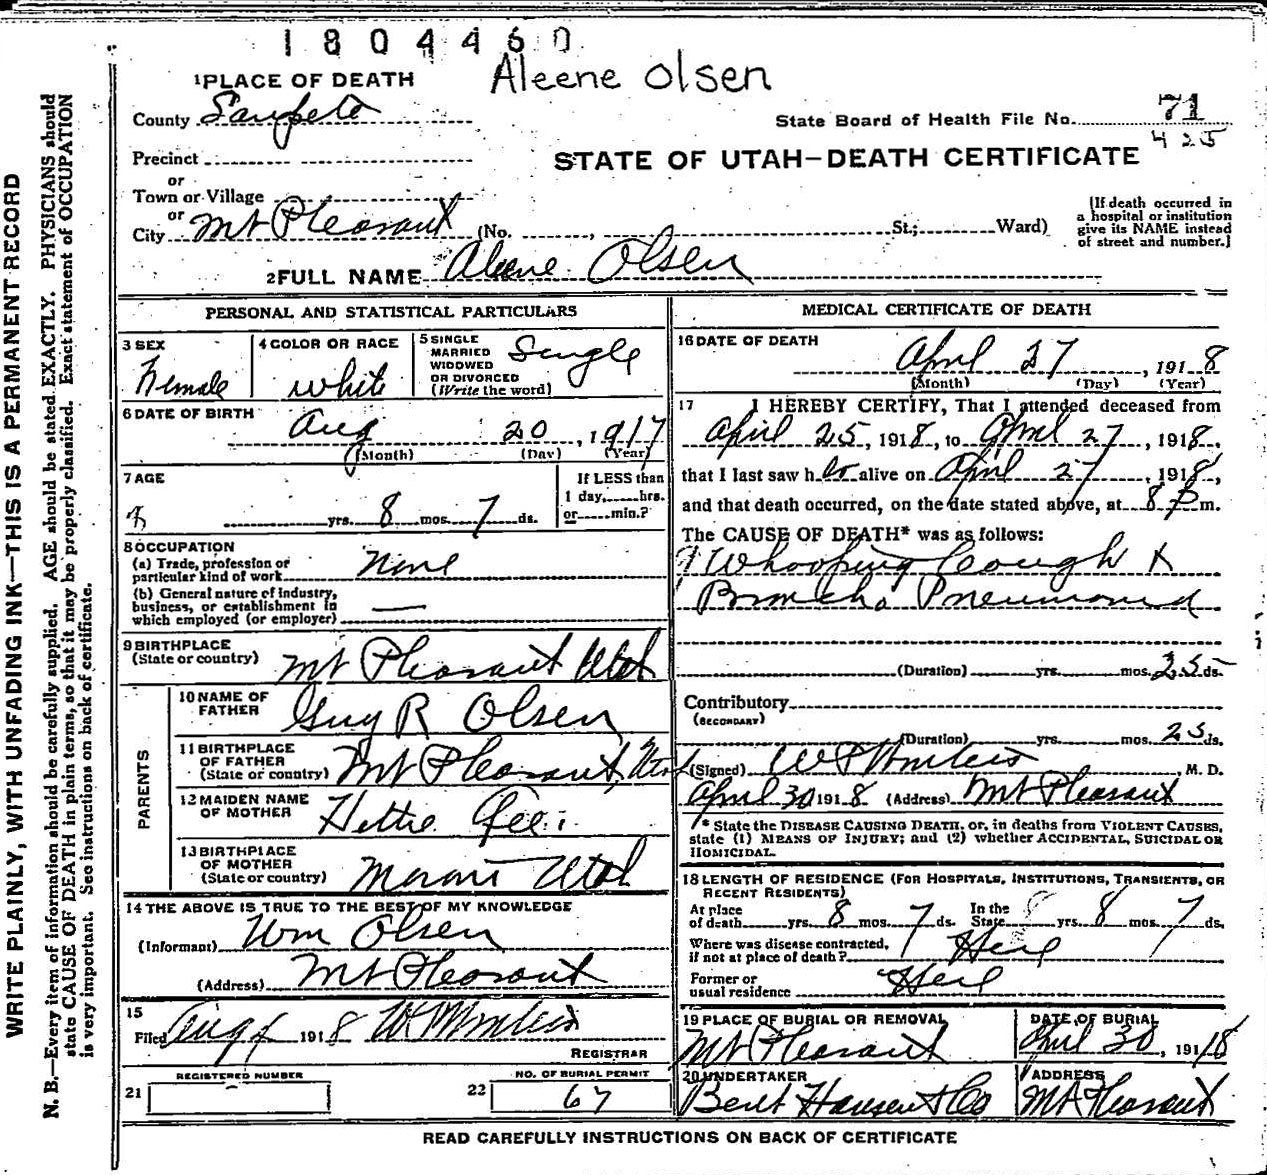 1804460
Aleene Olsen
1 PLACE OF DEATH
County Sanpete
State Board of Health File No. 71
425
Precinct
STATE OF UTAH—DEATH CERTIFICATE
or
Town or Village
or
City Mt Pleasant (No. , St.; Ward)
[If death occurred in
a hospital or institution
give its NAME instead
of street and number.]
2 FULL NAME Aleene Olsen
PERSONAL AND STATISTICAL PARTICULARS
3 SEX
Female
4 COLOR OR RACE
white
5 SINGLE
MARRIED
WIDOWED
OR DIVORCED
(Write the word)
Single
6 DATE OF BIRTH
Aug 20, 1917
(Month) (Day) (Year)
7 AGE
yrs. 8 mos. 7 ds.
If LESS than
1 day, hrs.
or min.?
8 OCCUPATION
(a) Trade, profession or
particular kind of work None
(b) General nature of industry,
business, or establishment in
which employed (or employer)
9 BIRTHPLACE
(State or country) Mt Pleasant Utah
PARENTS
10 NAME OF
FATHER Guy R Olsen
11 BIRTHPLACE
OF FATHER
(State or country) Mt Pleasant, Utah
12 MAIDEN NAME
OF MOTHER Hettie
13 BIRTHPLACE
OF MOTHER
(State or country) Moroni Utah
14 THE ABOVE IS TRUE TO THE BEST OF MY KNOWLEDGE
(Informant) Wm Olsen
(Address) Mt Pleasant
15
Filed Aug 1918
REGISTRAR
REGISTERED NUMBER
21
NO. OF BURIAL PERMIT
22 67
MEDICAL CERTIFICATE OF DEATH
16 DATE OF DEATH
April 27, 1918
(Month) (Day) (Year)
17 I HEREBY CERTIFY, That I attended deceased from
April 25, 1918, to April 27, 1918,
that I last saw her alive on April 27, 1918,
and that death occurred, on the date stated above, at 8 P m.
The CAUSE OF DEATH* was as follows:
Whooping Cough
Broncho Pneumonia
(Duration) yrs. mos. 25 ds.
Contributory
(SECONDARY)
(Duration) yrs. mos. 25 ds.
(Signed) M. D.
April 30 1918 (Address) Mt Pleasant
* State the DISEASE CAUSING DEATH, or, in deaths from VIOLENT CAUSES,
state (1) MEANS OF INJURY; and (2) whether ACCIDENTAL, SUICIDAL OR
HOMICIDAL.
18 LENGTH OF RESIDENCE (FOR HOSPITALS, INSTITUTIONS, TRANSIENTS, OR
RECENT RESIDENTS)
At place
of death yrs. 8 mos. 7 ds. In the
State yrs. 8 mos. 7 ds.
Where was disease contracted,
if not at place of death? Here
Former or
usual residence Here
19 PLACE OF BURIAL OR REMOVAL
Mt Pleasant
DATE OF BURIAL
April 30, 1918
20 UNDERTAKER
Bent Hansen & Co
ADDRESS
Mt Pleasant
READ CAREFULLY INSTRUCTIONS ON BACK OF CERTIFICATE
WRITE PLAINLY, WITH UNFADING INK—THIS IS A PERMANENT RECORD
N. B.—Every item of information should be carefully supplied. AGE should be stated EXACTLY. PHYSICIANS should
state CAUSE OF DEATH in plain terms, so that it may be properly classified. Exact statement of OCCUPATION
is very important. See instructions on back of certificate.